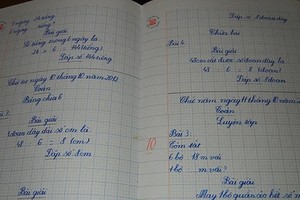 1 ngày: 24 giờ
6 ngày: giờ?
Bài giải
Số giờ trong 6 ngày là
24 x 6 = 144 (giờ)
Đáp số: 144 giờ
Thứ tư ngày 10 tháng 10 năm 2012
Toán
Bảng chia 6
Bài giải
1 đoạn dây dài số cm là
48 : 6 = 8 (cm)
Đáp số: 8cm
Bài giải
Đáp số: 8 đoạn dây
Chữa bài
Bài 4
Bài giải
48 : 6 = 8 (đoạn)
Đáp số: 8 đoạn
Thứ năm ngày 11 tháng 10 năm
Toán
Luyện tập
10
Bài 3:
Tóm tắt
6 bộ: 18 m vải
1 bộ: m vải?
Bài giải
May 1 bộ quần áo hết số m